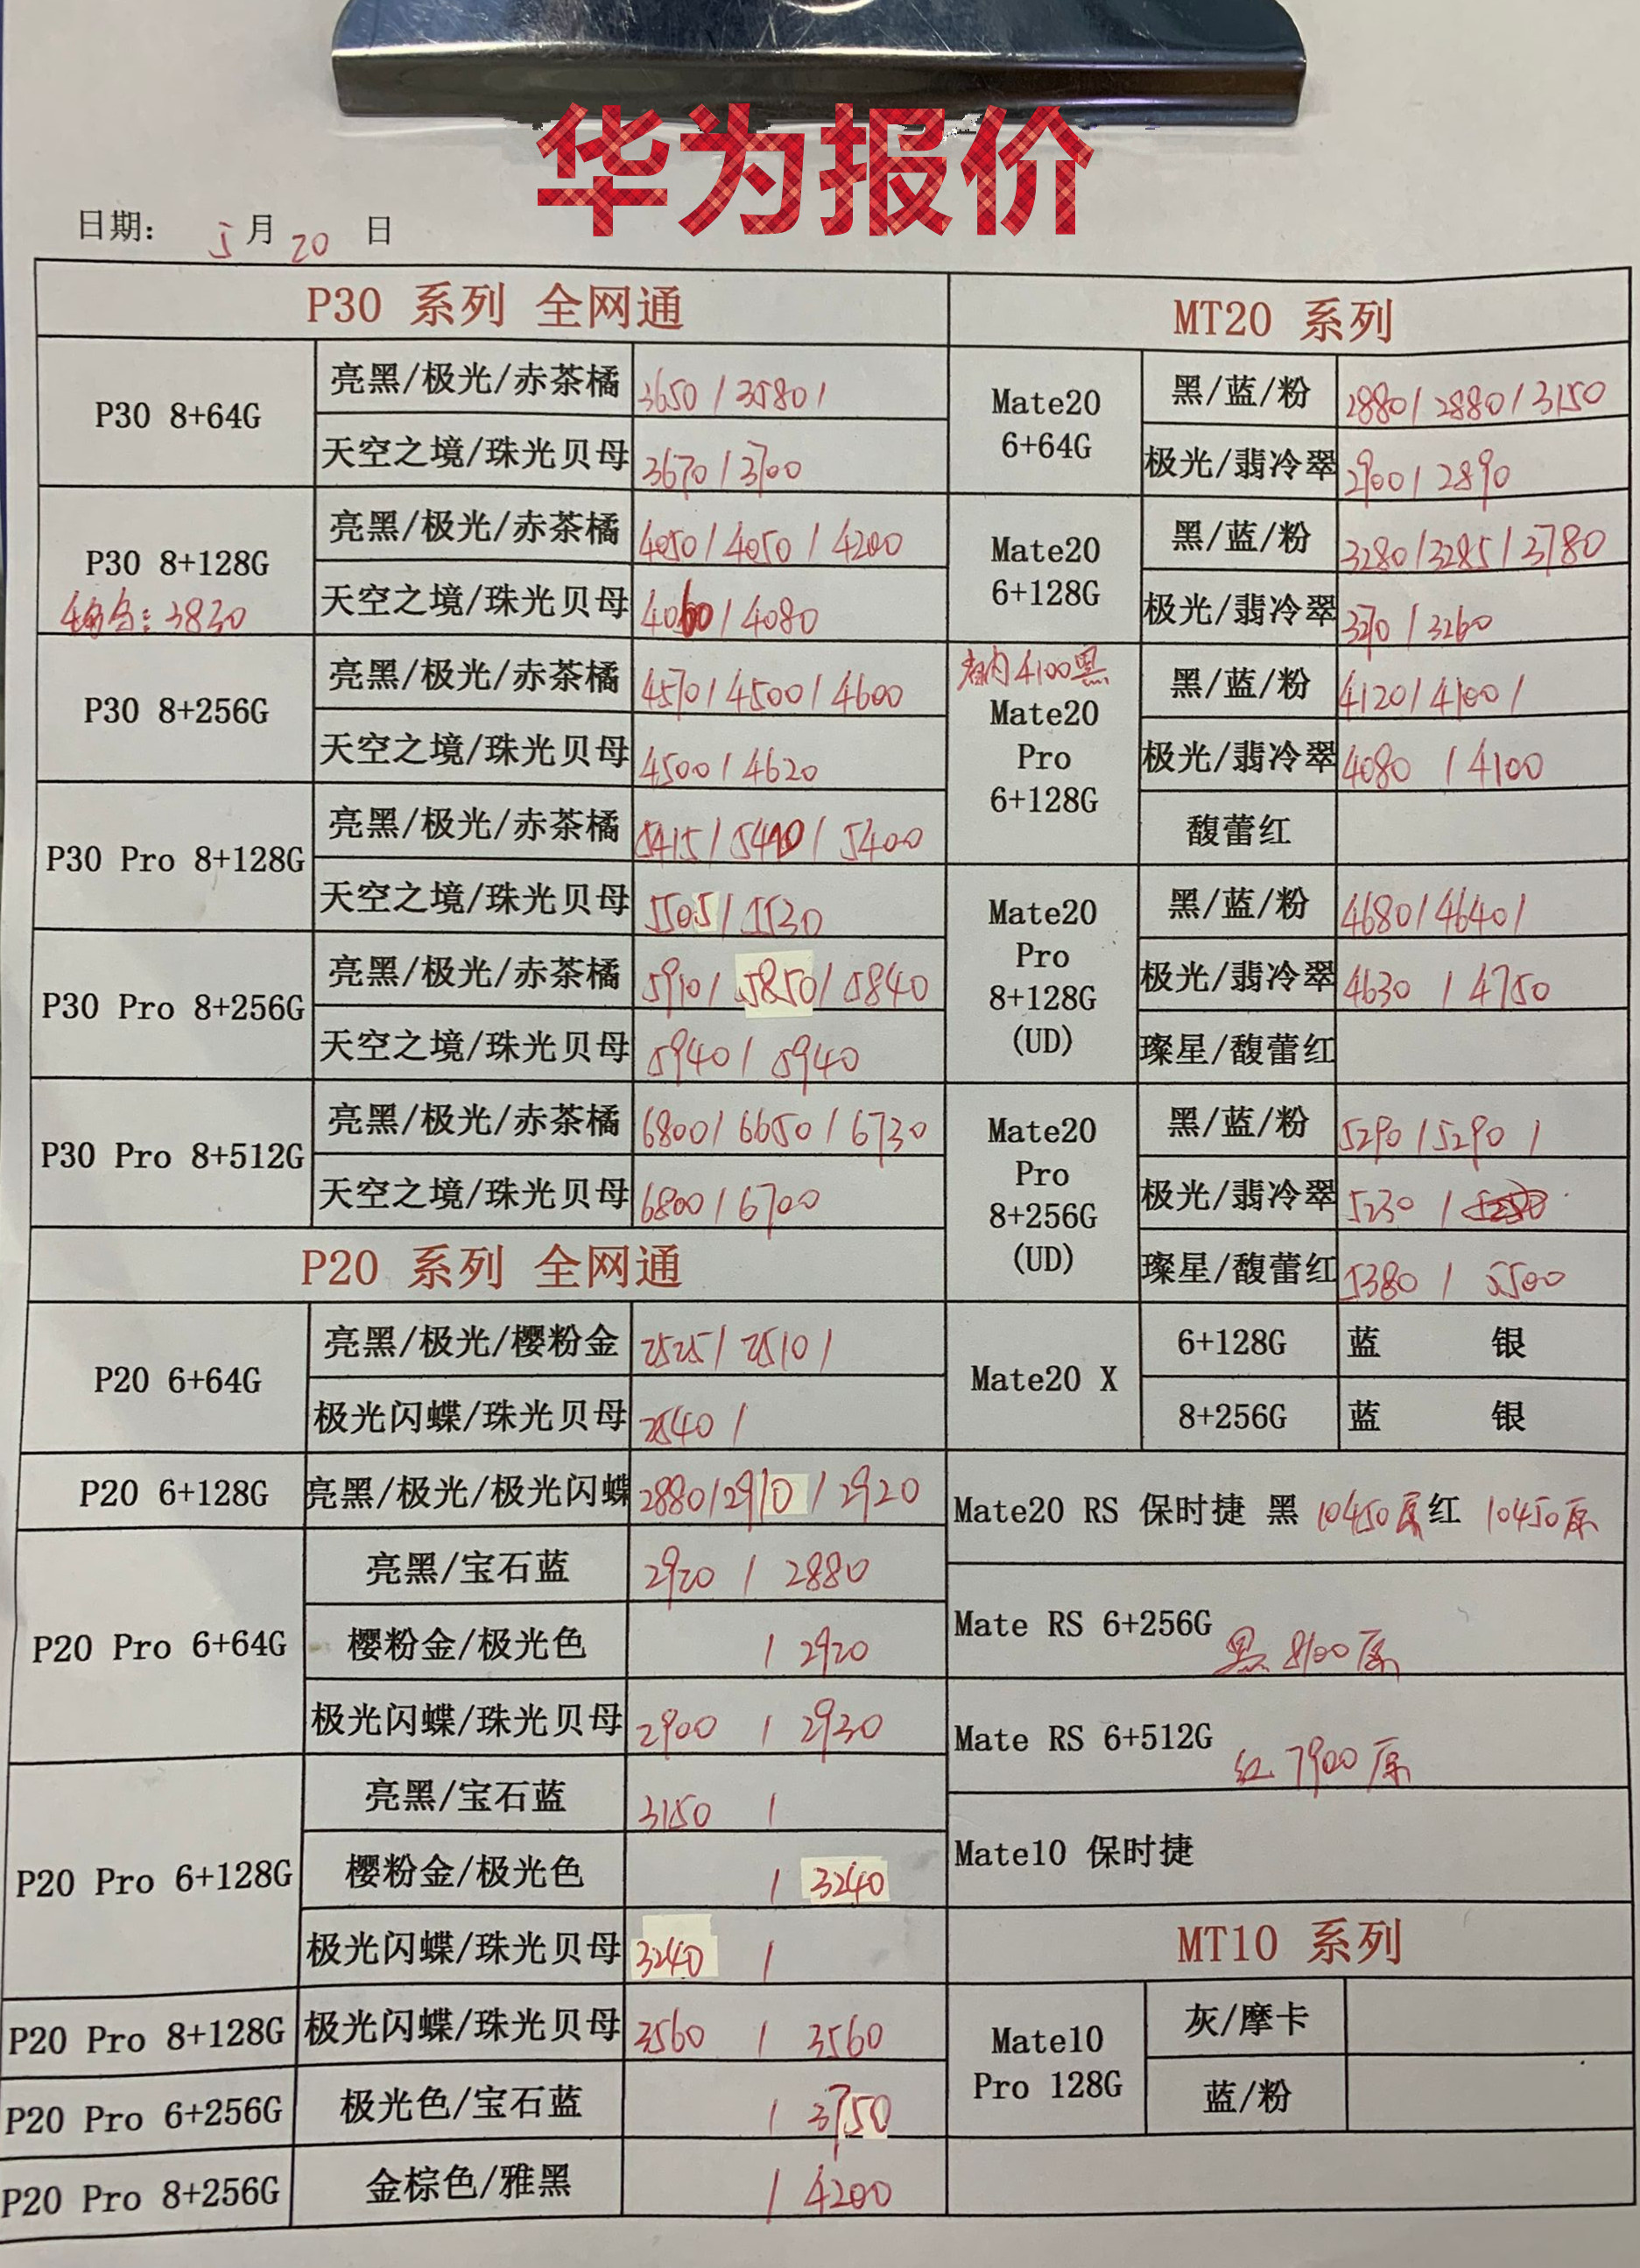 华为报价
日期: 5月20日
P30 系列 全网通
P30 8+64G
亮黑/极光/赤茶橘 3650/3580/
天空之境/珠光贝母 3670/3700
P30 8+128G
3830
亮黑/极光/赤茶橘 4050/4050/4200
天空之境/珠光贝母 4060/4080
P30 8+256G
亮黑/极光/赤茶橘 4570/4500/4600
天空之境/珠光贝母 4500/4620
P30 Pro 8+128G
亮黑/极光/赤茶橘 5415/5410/5400
天空之境/珠光贝母 5505/5530
P30 Pro 8+256G
亮黑/极光/赤茶橘 5910/5850/5840
天空之境/珠光贝母 5940/5940
P30 Pro 8+512G
亮黑/极光/赤茶橘 6800/6650/6730
天空之境/珠光贝母 6800/6700
P20 系列 全网通
P20 6+64G
亮黑/极光/樱粉金 2525/2510/
极光闪蝶/珠光贝母 2540/
P20 6+128G
亮黑/极光/极光闪蝶 2880/2910/2920
P20 Pro 6+64G
亮黑/宝石蓝 2920/2880
樱粉金/极光色 /2920
极光闪蝶/珠光贝母 2900/2930
P20 Pro 6+128G
亮黑/宝石蓝 3150/
樱粉金/极光色 /3240
极光闪蝶/珠光贝母 3240/
P20 Pro 8+128G
极光闪蝶/珠光贝母 3560/3560
P20 Pro 6+256G
极光色/宝石蓝 /3750
P20 Pro 8+256G
金棕色/雅黑 /4200
MT20 系列
Mate20
6+64G
黑/蓝/粉 2880/2880/3150
极光/翡冷翠 2900/2890
Mate20
6+128G
黑/蓝/粉 3280/3285/3780
极光/翡冷翠 /3260
内4100黑
Mate20
Pro
6+128G
黑/蓝/粉 4120/4100/
极光/翡冷翠 4080/4100
馥蕾红
Mate20
Pro
8+128G
(UD)
黑/蓝/粉 4680/4640/
极光/翡冷翠 4630/4750
璨星/馥蕾红
Mate20
Pro
8+256G
(UD)
黑/蓝/粉 5290/5290/
极光/翡冷翠 5230/
璨星/馥蕾红 5380/5500
Mate20 X
6+128G 蓝 银
8+256G 蓝 银
Mate20 RS 保时捷 黑 10450原 红 10450原
Mate RS 6+256G 黑 8100原
Mate RS 6+512G 红 7900原
Mate10 保时捷
MT10 系列
Mate10
Pro 128G
灰/摩卡
蓝/粉